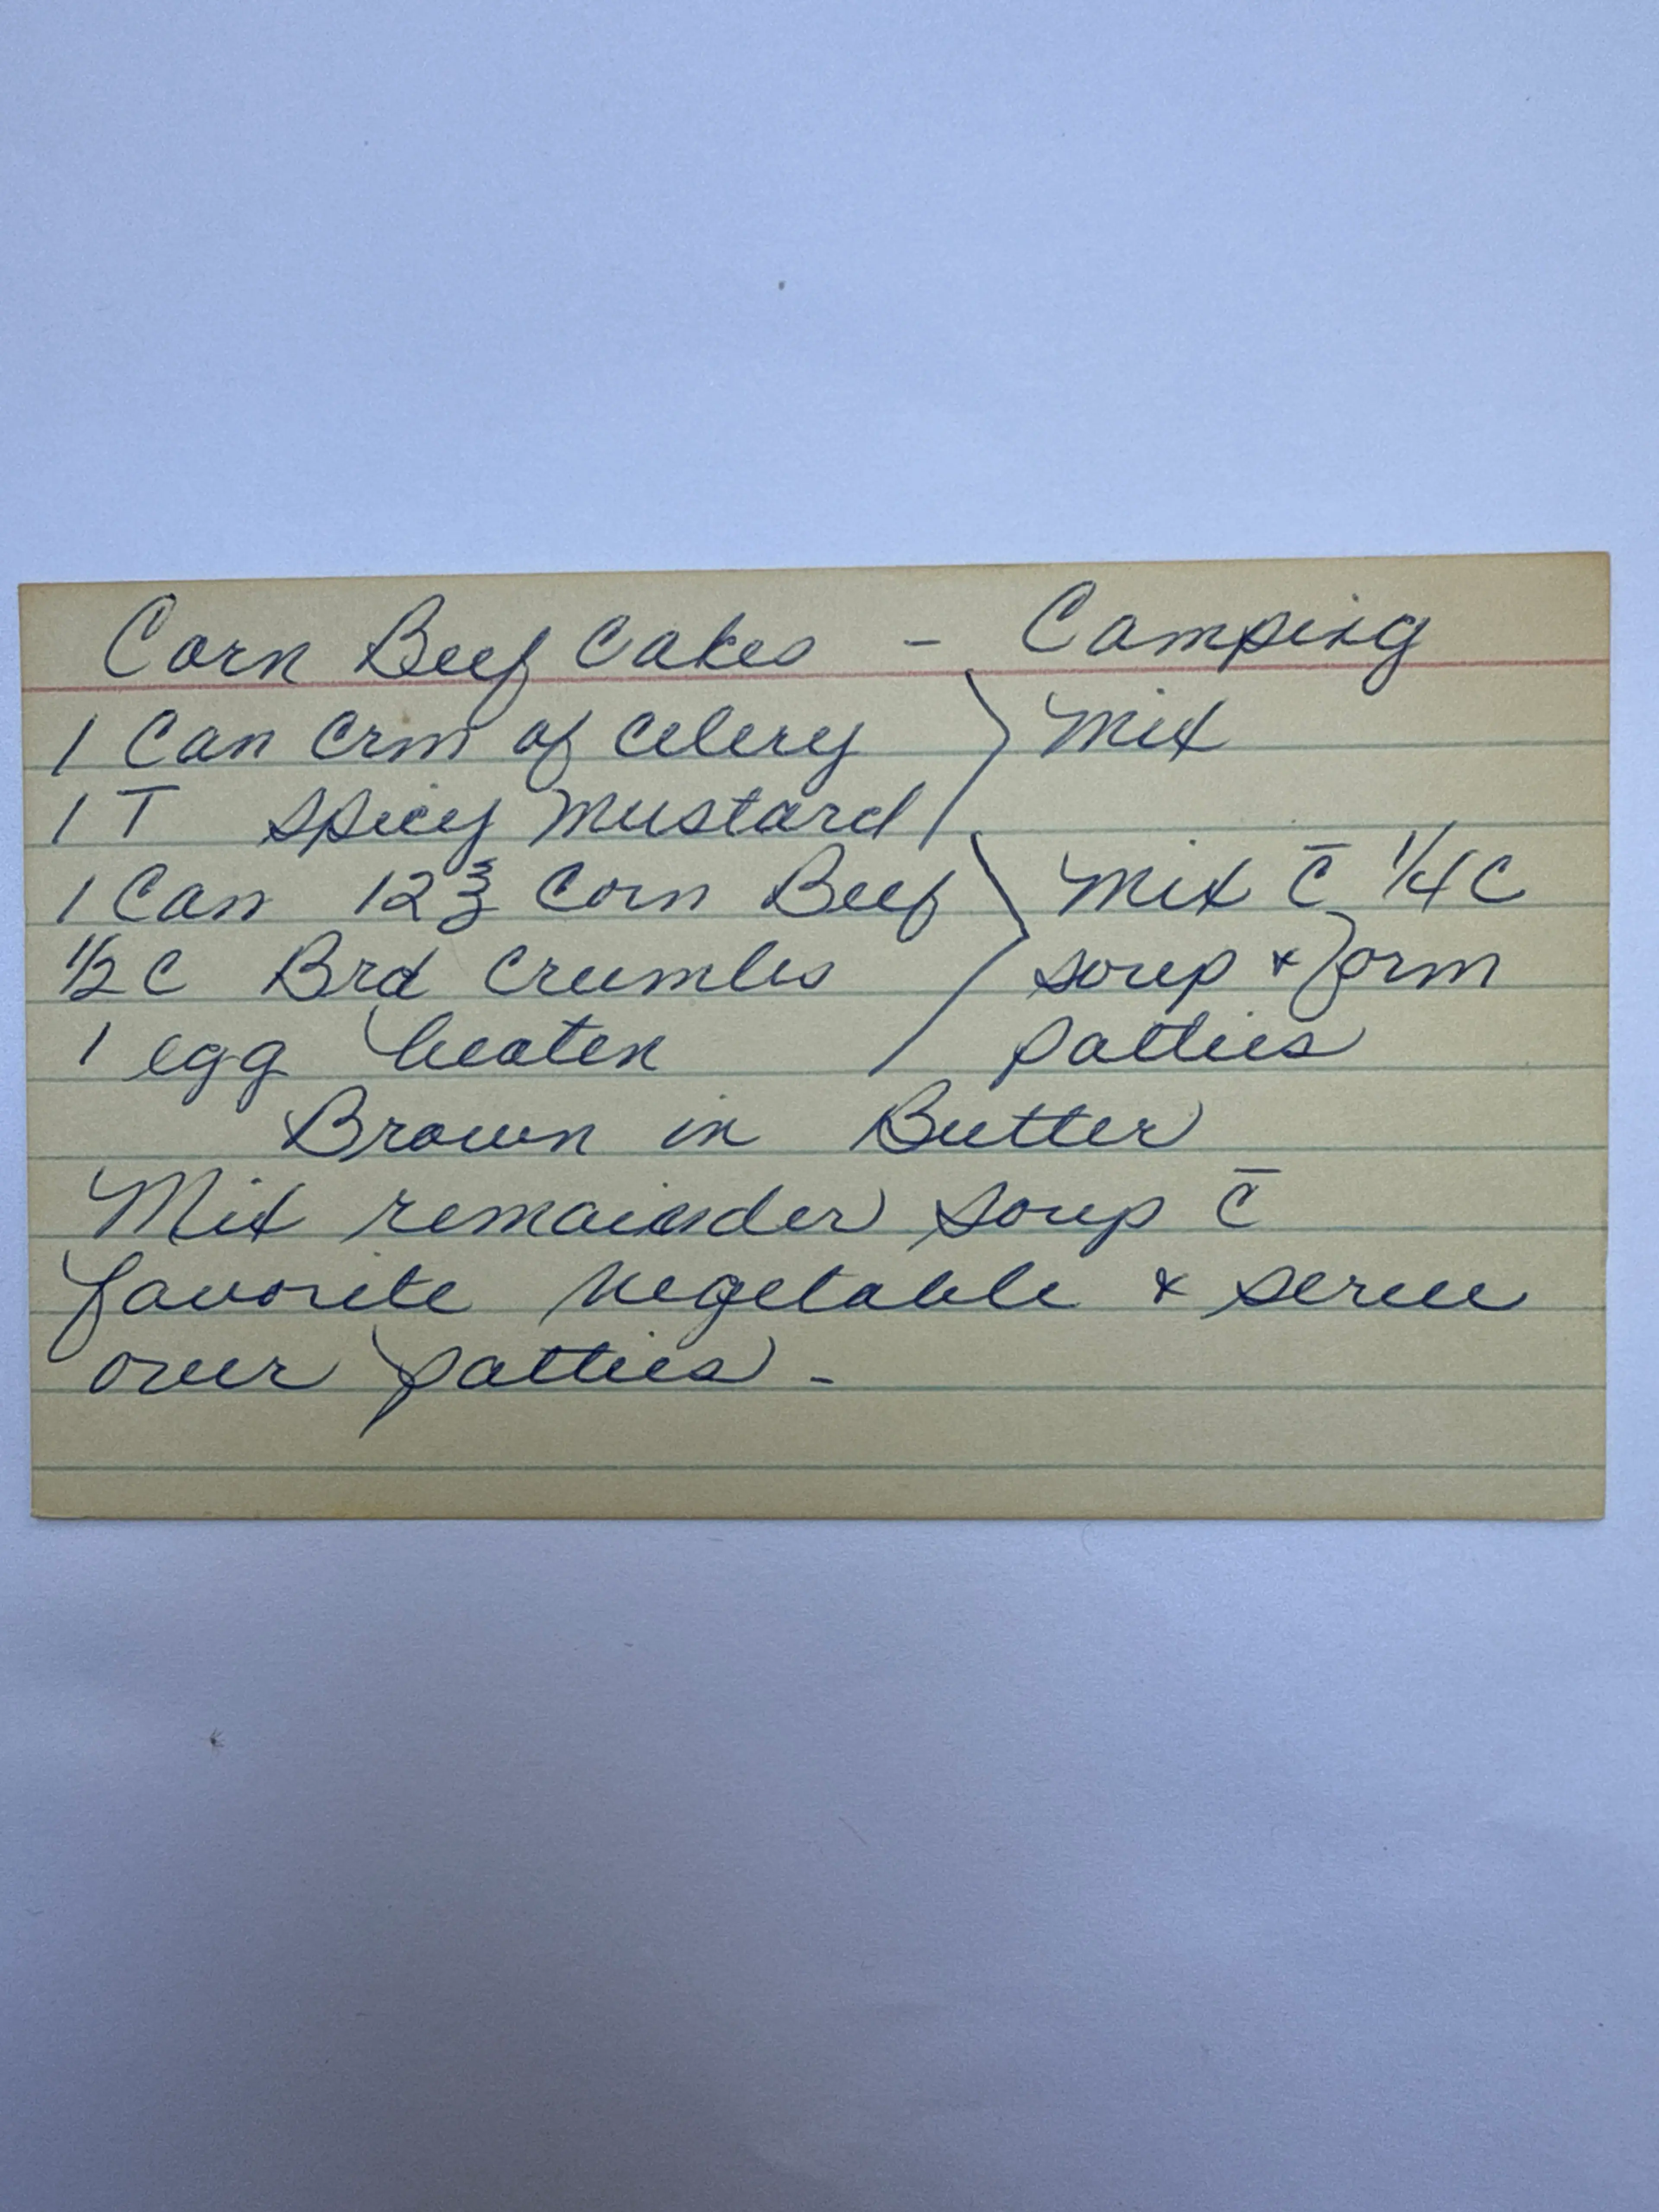 Corn Beef Cakes - Camping
1 Can Crm of Celery } Mix
1 T Spicy Mustard
1 Can 12℥ Corn Beef } Mix c̄ 1/4 C
1/2 C Brd Crumbs soup & form
1 egg beaten patties
Brown in Butter
Mix remainder soup c̄
favorite vegetable & serve
over patties -